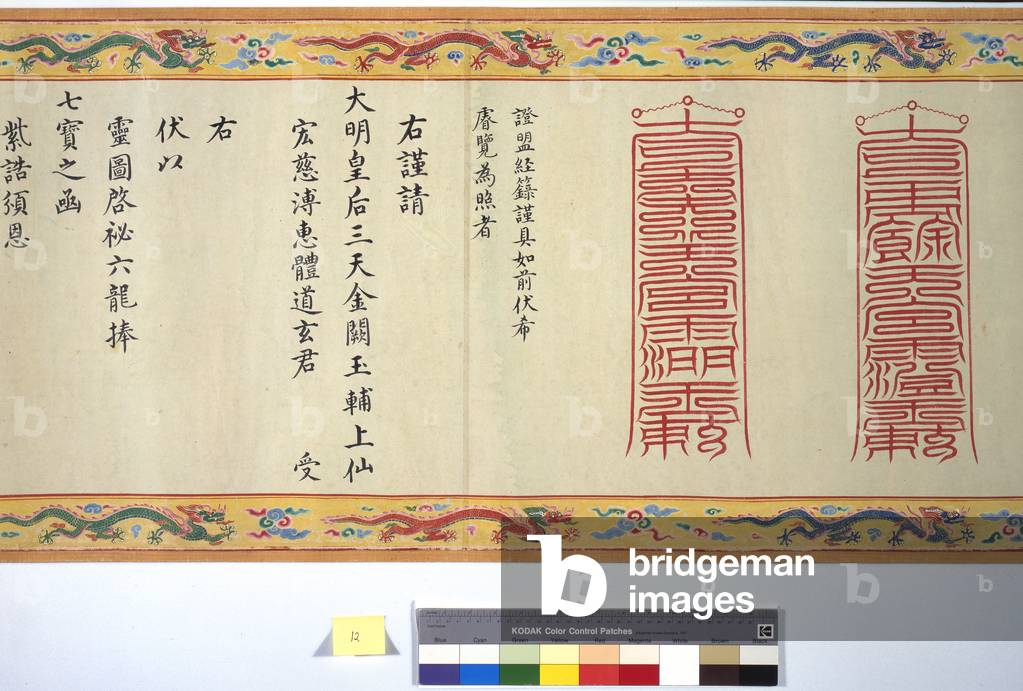 證盟經籙謹具如前伏希
睿覽為照者
右謹請
大明皇后三天金闕玉輔上仙
宏慈溥惠體道玄君 受
右
伏以
靈圖啓祕六龍捧
七寶之函
紫誥須恩
bridgeman
images
12
KODAK Color Control Patches
Blue Cyan Green Yellow Red Magenta White Brown Black